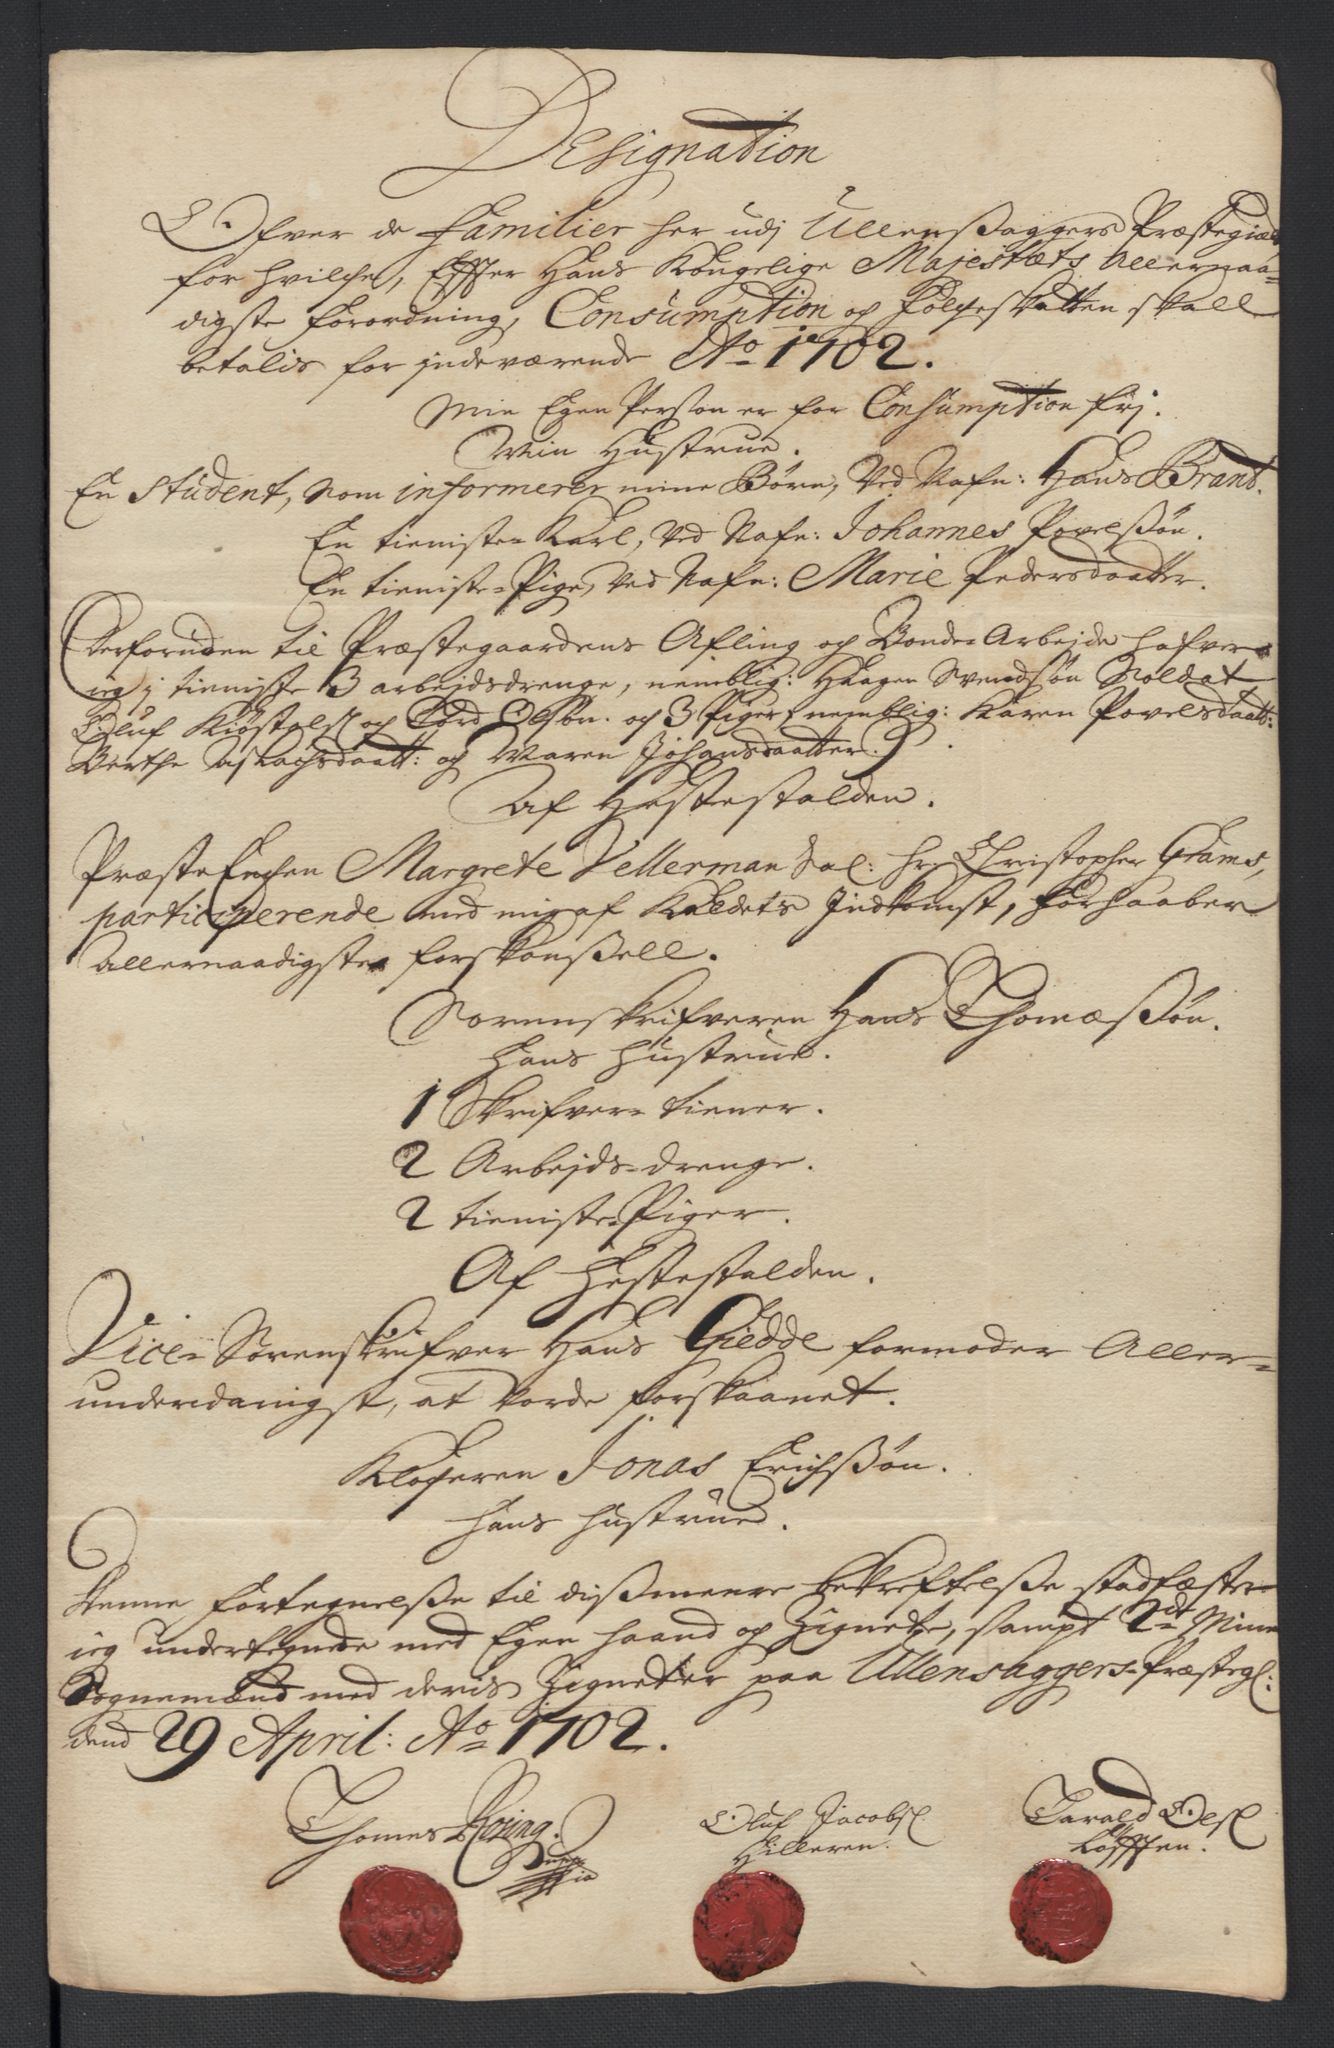 Designation
Ofver de Familier her udj Ullensaggers Præstegield
for hvilche, Effter Hans Kongelige Majestæts Allernaa-
digste forordning, Consumption og Folcheskatten skall
betalis for indeværende Ao 1702.
Min Egen Person er for Consumption frj.
Min Hustrue.
En Student, som informerer mine Børn, Ved Nafn: Hans Brant.
En tieniste-Karl, Ved Nafn: Johannes Povelssøn.
En tieniste-Pige, Ved Nafn: Marie Pedersdaatter.
(Derforuden til Præstegaardens Afling og Bonde-Arbejde hafver
ieg i tieniste 3 arbejdsdrenge, nemblig: Haagen Svendsøn Soldat
Oluf Kiøstels: og Tord Olsøn. og 3 Piger, nemblig: Karen Povelsdaatt:
Berthe Aslachsdaatt: og Maren Johansdaatter.)
Af Hestestalden.
Præste Enchen Margrete Vellerman Sal: Hr Christopher Grams,
participerende med mig af Kaldets Indkomst, forhaaber
Allernaadigste forskonssell.
Sorenskrifveren Hans Thomæssøn.
Hans Hustrue.
1 Skrifver-tiener.
2 Arbejds-drenge.
2 tieniste-Piger.
Af Hestestalden.
Vice-Sorenskrifver Hans Giedde formoder Aller-
underdanigst, at vorde forskaanet.
Klocheren Jonas Erichssøn.
Hans Hustrue.
Denne fortegnelsse til dissmeere bekreftelsse stadfæster
ieg undertegnede med Egen haand og Zignette, sampt 2de Mine
Sognemænd med deris Zignetter paa Ullensaggers-Præstegl:
dend 29 April: Ao 1702.
Thomes Rosing.
Oluf Jacobsl
Tarald Olsl
Hilleren.
Løfften.